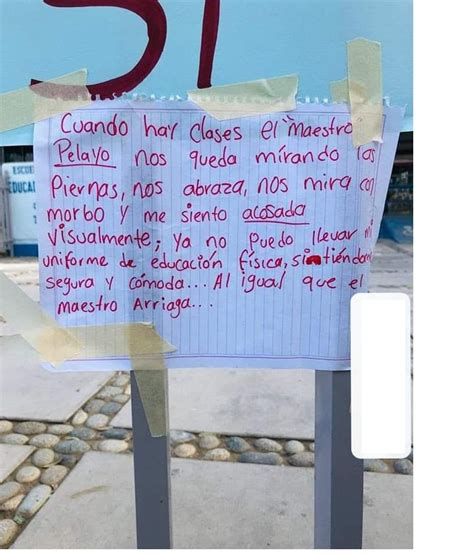 SI
Cuando hay Clases el "Maestro"
Pelayo nos queda mirando las
Piernas, nos abraza, nos mira con
morbo y me siento acosada
visualmente; Ya no Puedo llevar mi
uniforme de educación física, sintiéndom
segura y cómoda... Al igual que el
maestro Arriaga...
ESCUE
EDUCA